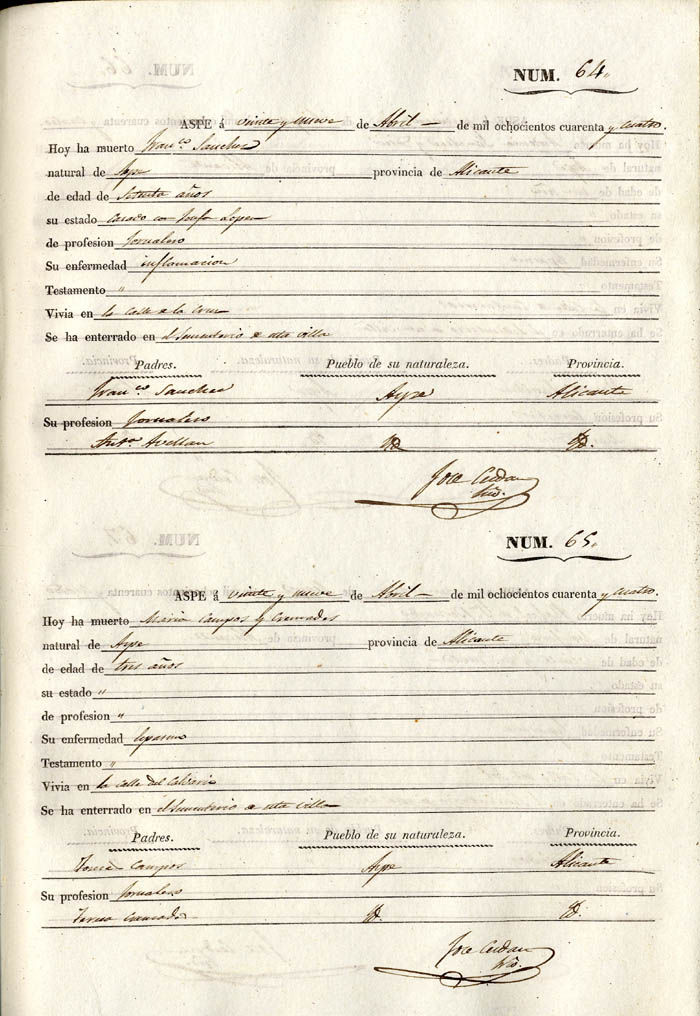 NUM. 64.
ASPE á veinte y nueve de Abril de mil ochocientos cuarenta y cuatro.
Hoy ha muerto Franco. Sanchez
natural de Aspe provincia de Alicante
de edad de Setenta años
su estado Casado con Josefa Lopez
de profesion Jornalero
Su enfermedad inflamacion
Testamento "
Vivia en la Calle de la Cruz
Se ha enterrado en el Sementerio de esta villa
Padres. Pueblo de su naturaleza. Provincia.
Franco. Sanchez Aspe Alicante
Su profesion Jornalero
Anta. Avellan Id. Id.
Jose Cerdan
NUM. 65.
ASPE á veinte y nueve de Abril de mil ochocientos cuarenta y cuatro.
Hoy ha muerto Maria Campos y Cremades
natural de Aspe provincia de Alicante
de edad de tres años
su estado "
de profesion "
Su enfermedad
Testamento "
Vivia en la Calle del Calvario
Se ha enterrado en el Sementerio de esta villa
Padres. Pueblo de su naturaleza. Provincia.
Campos Aspe Alicante
Su profesion Jornalero
Teresa Cremades Id. Id.
Jose Cerdan